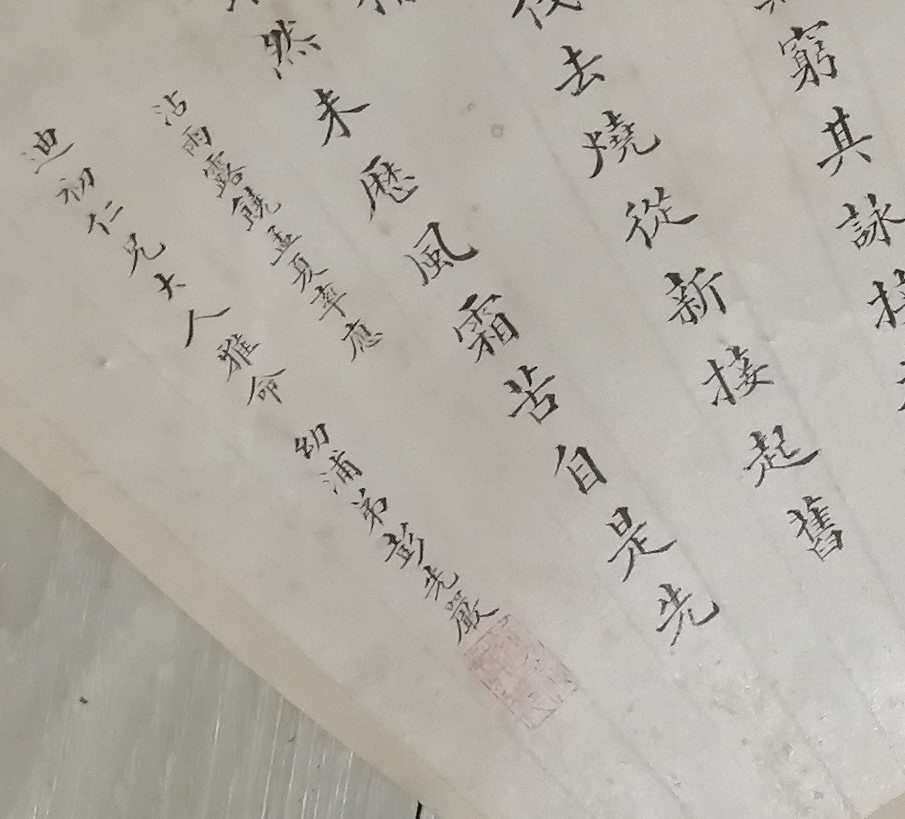 窮其詠
去燒從新接起舊
然未歷風霜苦自是先
沾雨露饒孟夏率應
迪初仁兄大人雅命 幼浦弟彭先嚴